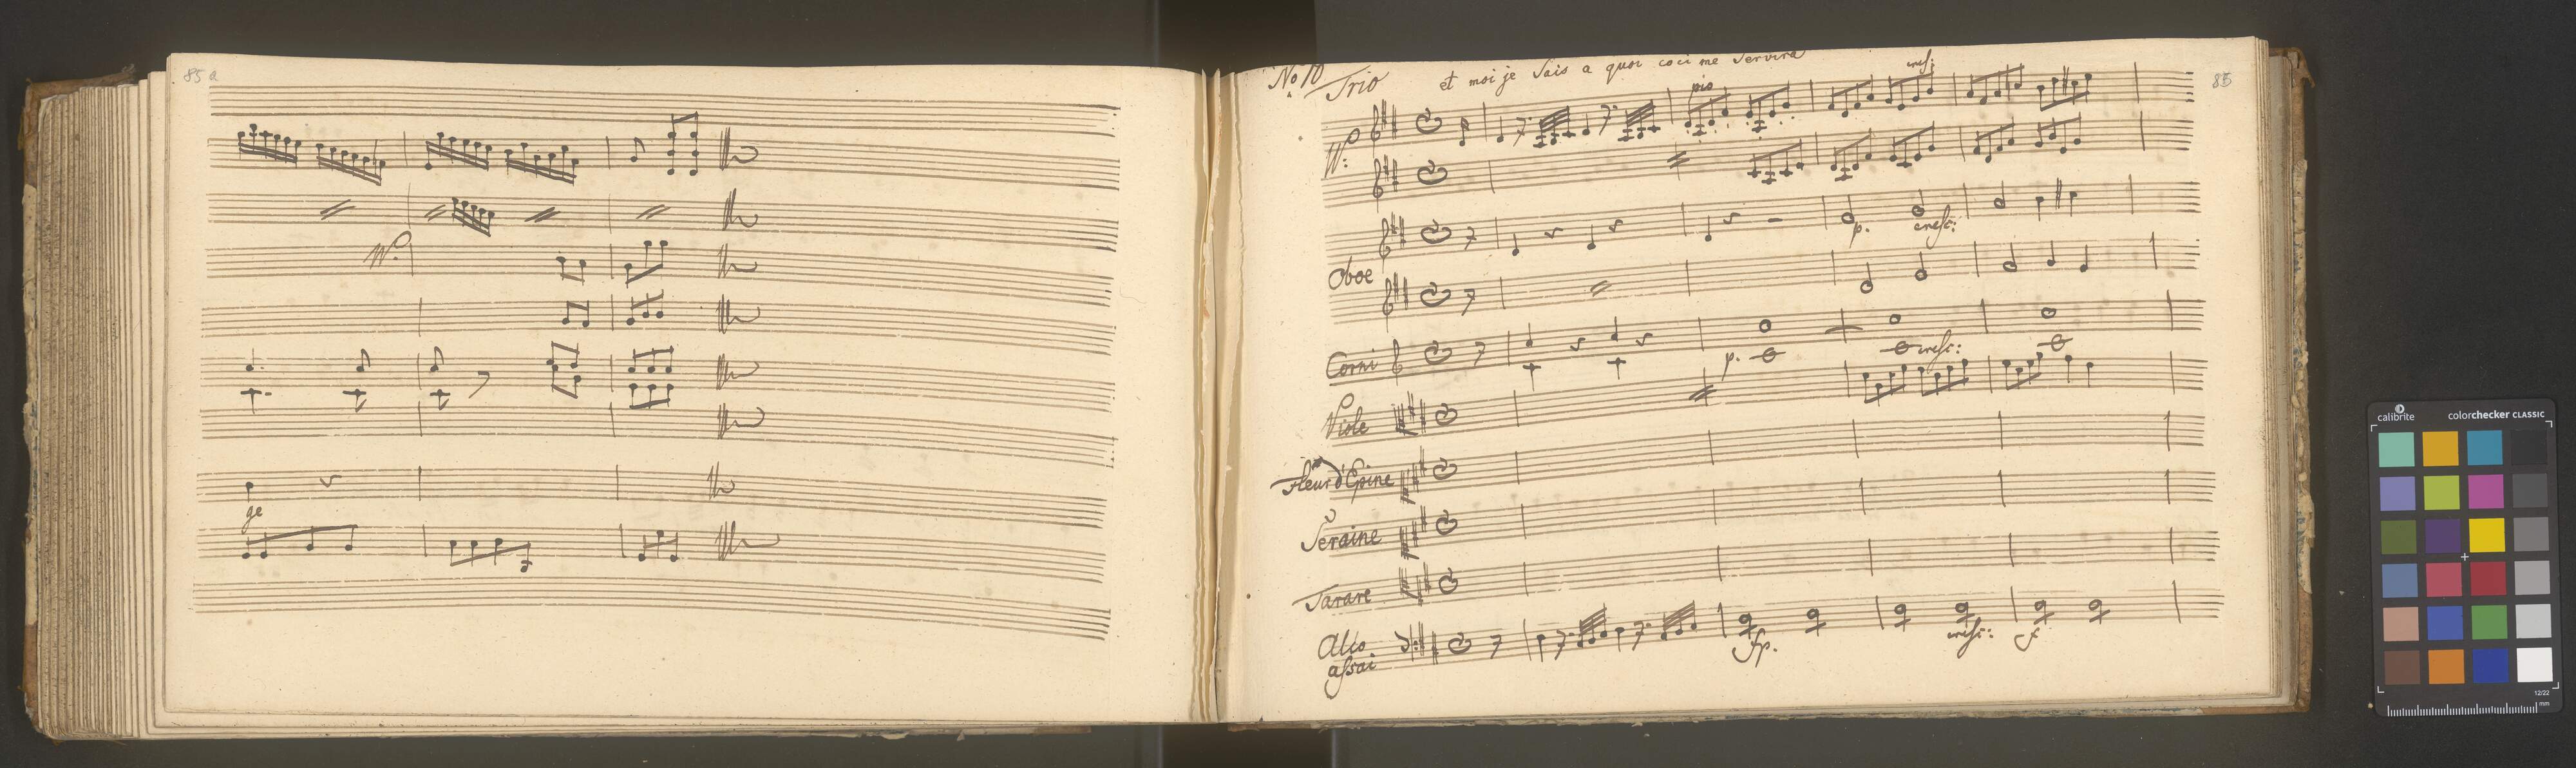 85 a
W.
ge
No. 10 Trio et moi je Sais a quoi ceci me Servira
85
cresc:
pio
W:
Oboe
p. cresc:
Corni
p. cresc:
Viole
Fleur d'Epine
Seraine
Tarare
Allo
assai
fp. cresc: f
calibrite colorchecker CLASSIC
12/22
mm